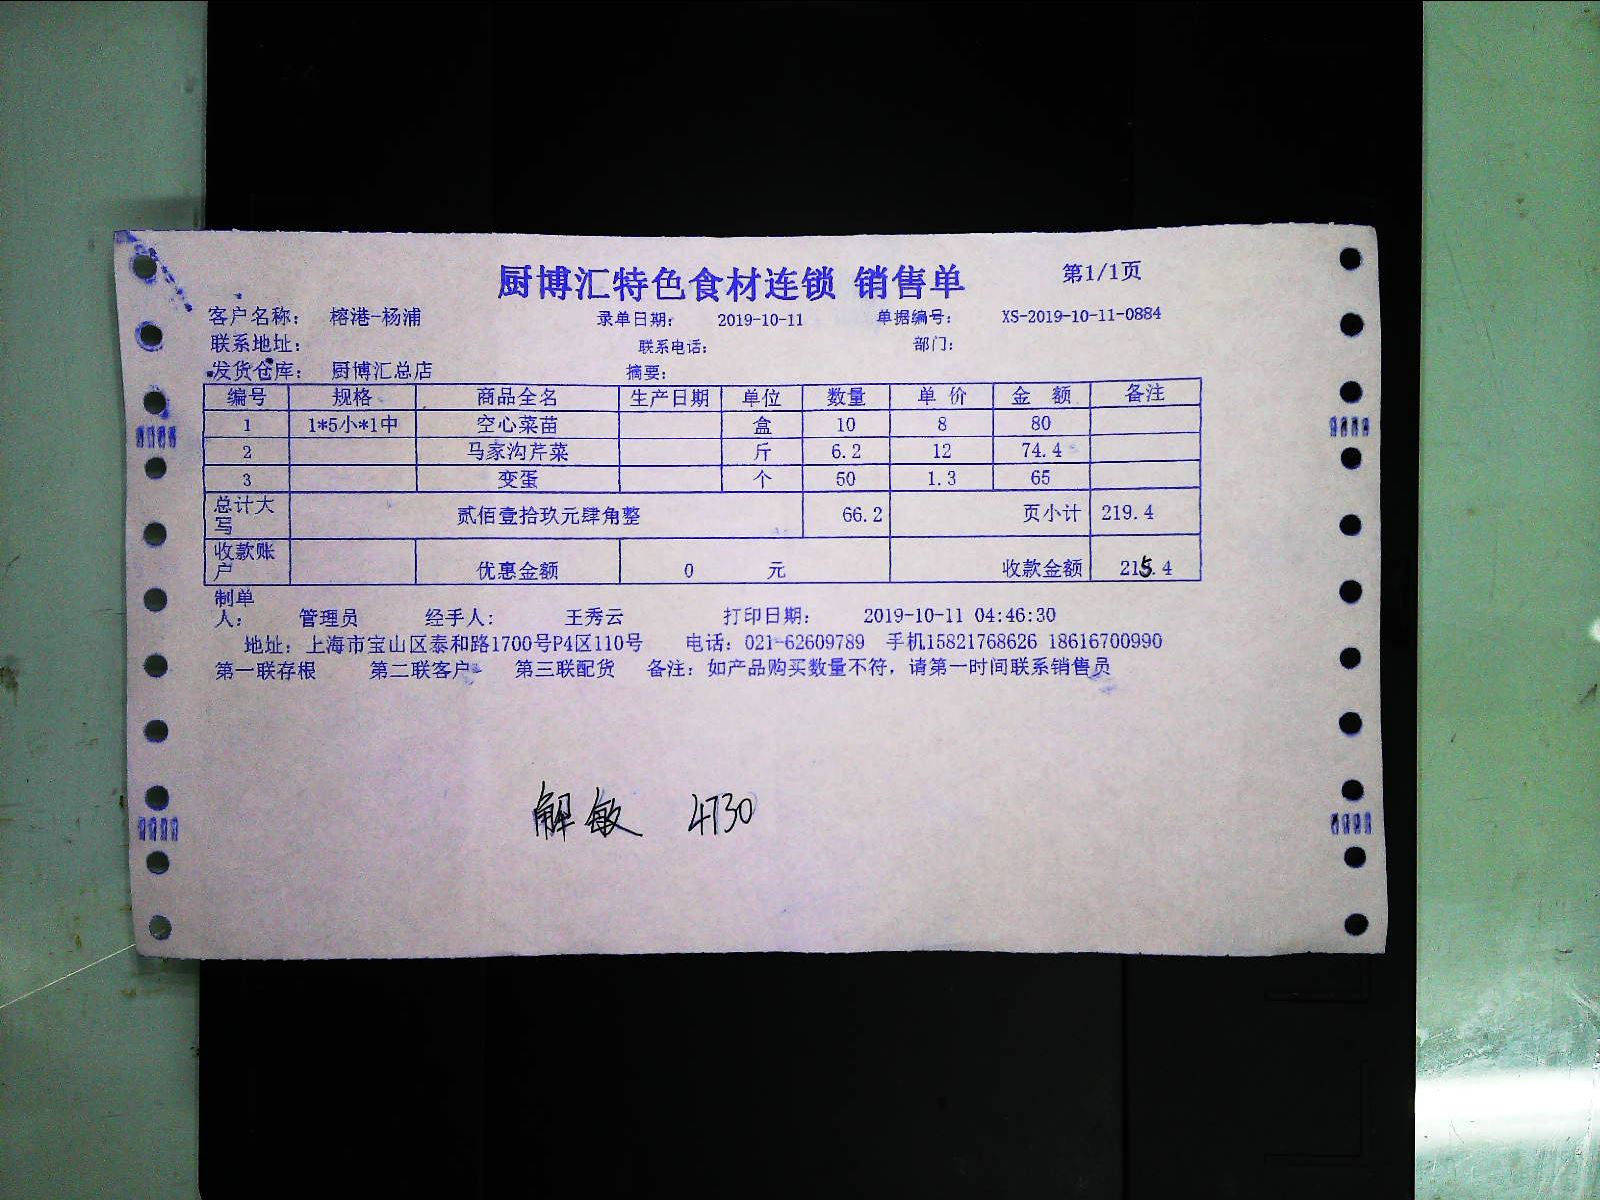 厨博汇特色食材连锁 销售单 第1/1页
客户名称： 榕港-杨浦 录单日期： 2019-10-11 单据编号： XS-2019-10-11-0884
联系地址： 联系电话： 部门：
发货仓库： 厨博汇总店 摘要：
编号 规格 商品全名 生产日期 单位 数量 单 价 金 额 备注
1 1*5小*1中 空心菜苗 盒 10 8 80
2 马家沟芹菜 斤 6.2 12 74.4
3 变蛋 个 50 1.3 65
总计大写 贰佰壹拾玖元肆角整 66.2 页小计 219.4
收款账户 优惠金额 0 元 收款金额 215.4
制单人： 管理员 经手人： 王秀云 打印日期： 2019-10-11 04:46:30
地址：上海市宝山区泰和路1700号P4区110号 电话：021-62609789 手机15821768626 18616700990
第一联存根 第二联客户 第三联配货 备注：如产品购买数量不符，请第一时间联系销售员
解敏 4730